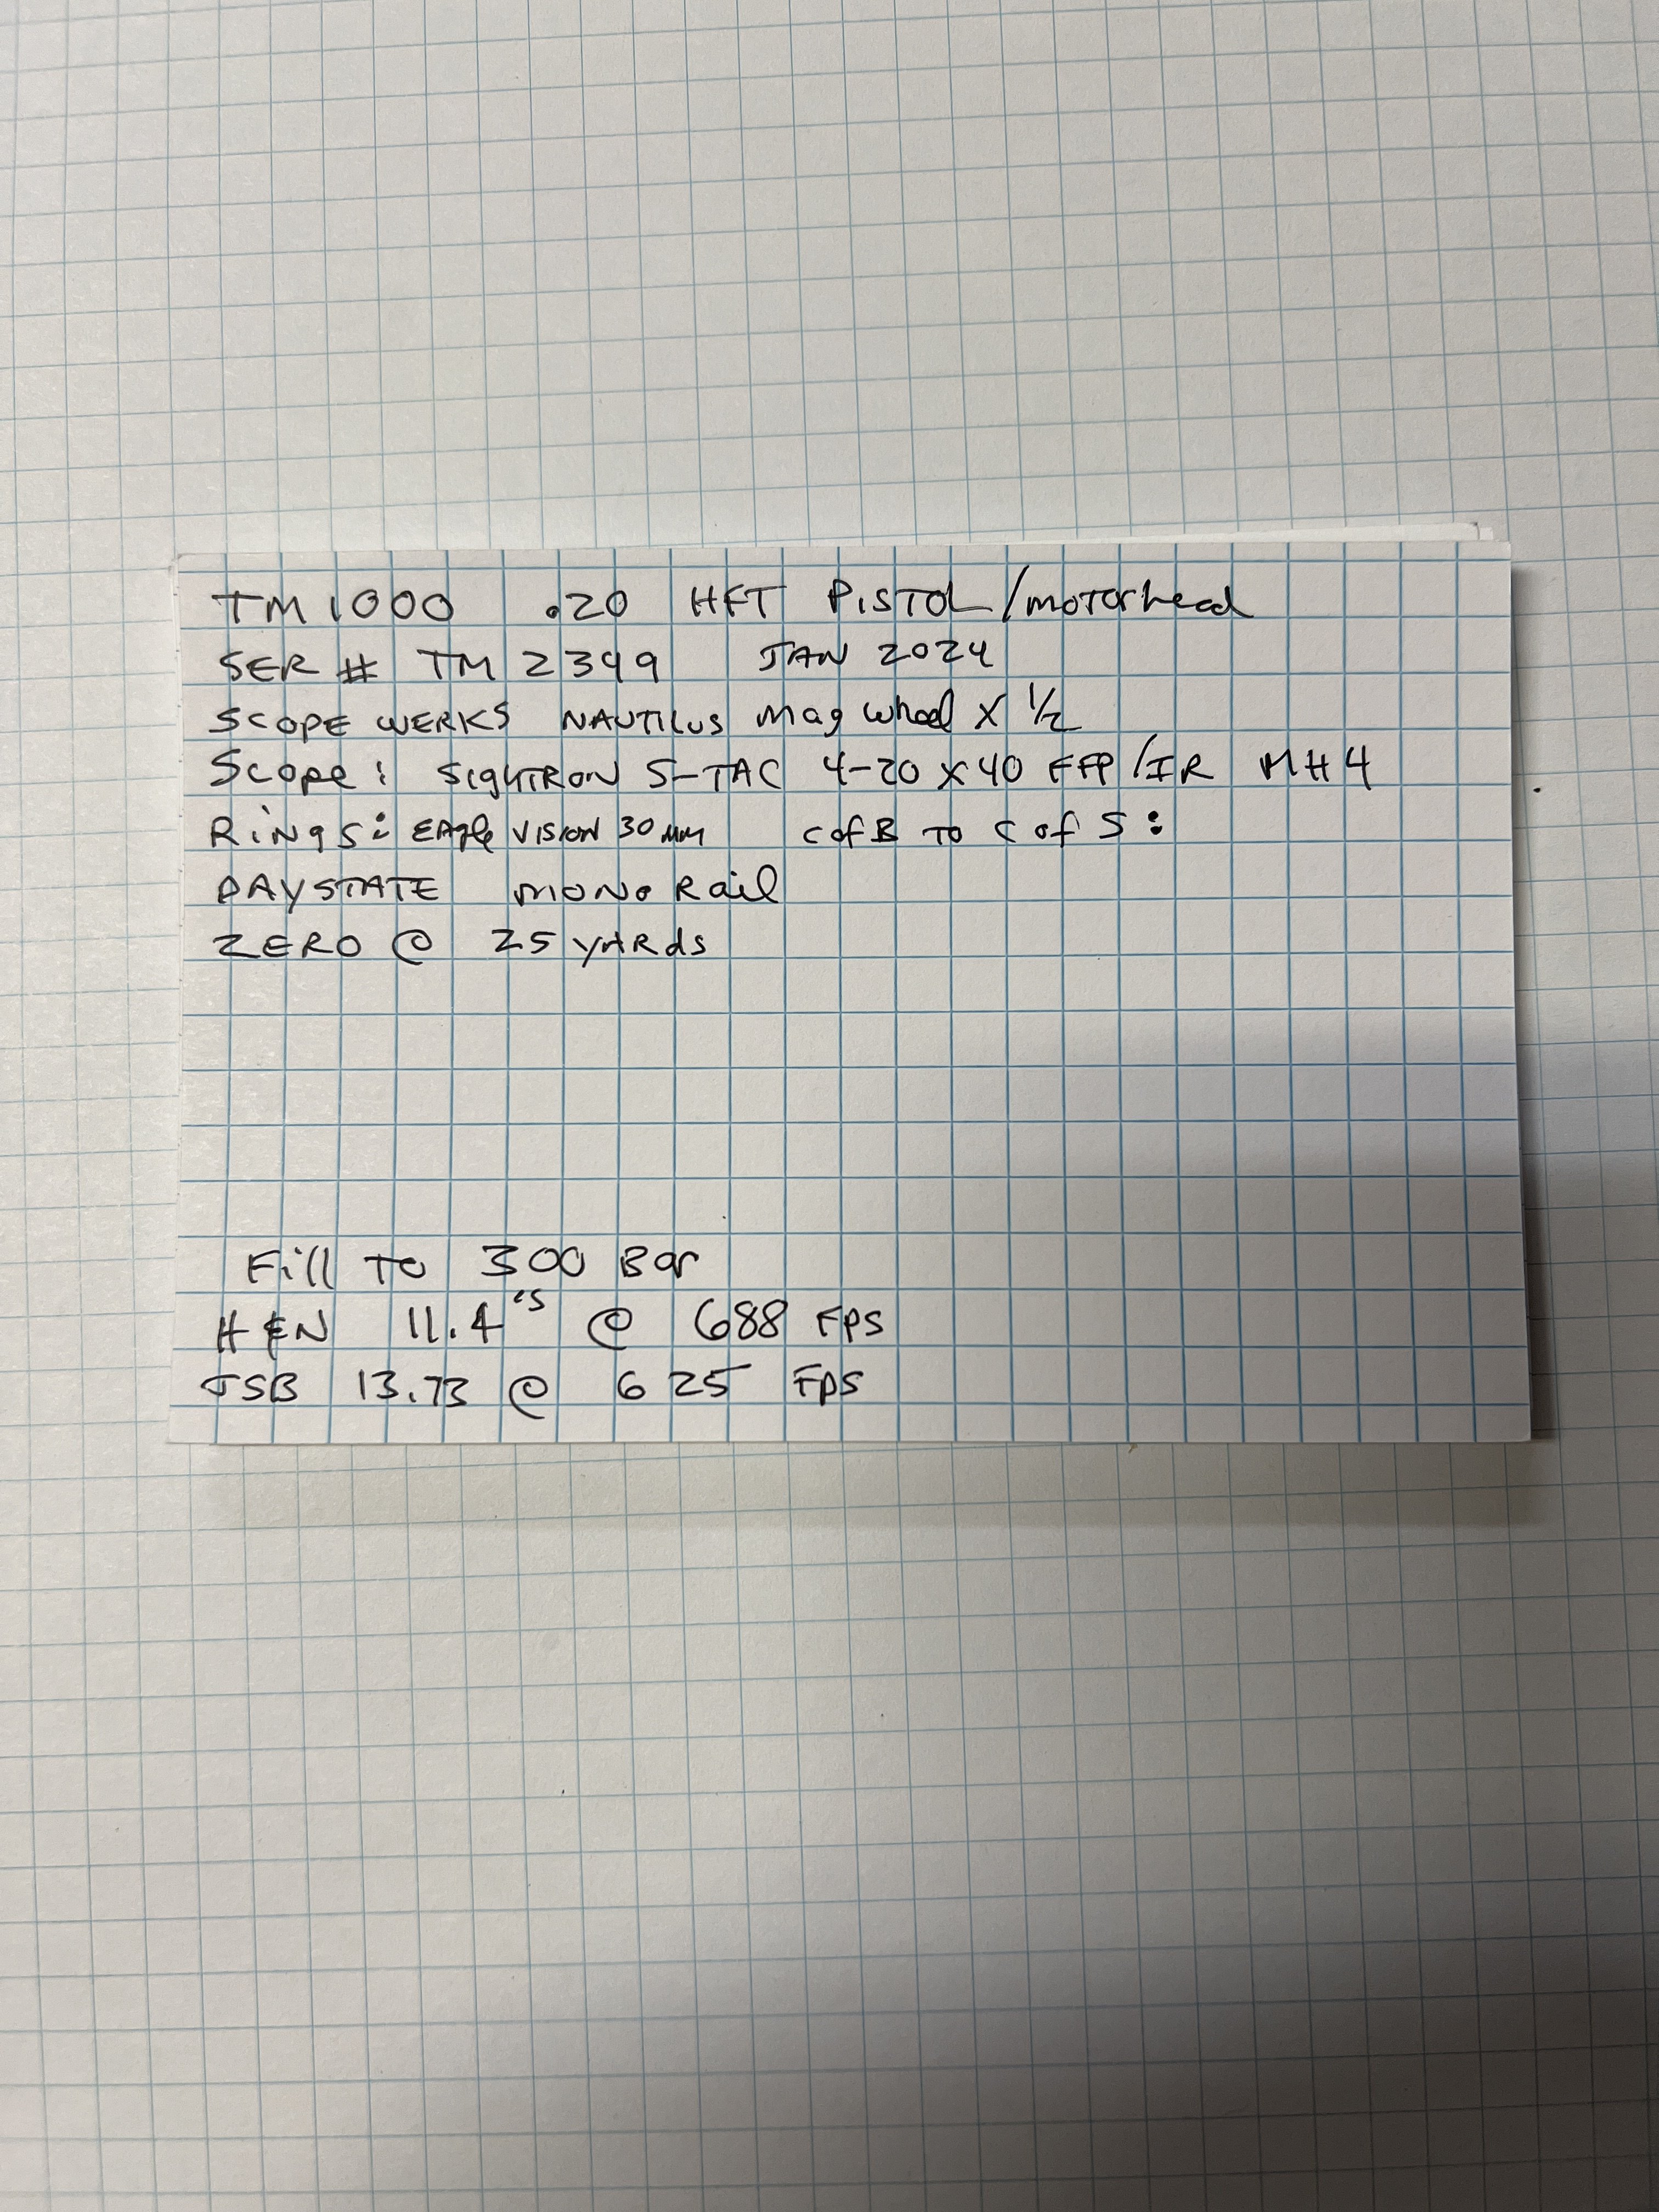 TM1000 .20 HFT PISTOL/motorhead
SER # TM2349 JAN 2024
SCOPE WERKS NAUTILUS mag wheel X 1/2
Scope: SightRON S-TAC 4-20X40 FFP/IR MH4
Rings: Eagle Vision 30mm C of B TO C of S:
DAYSTATE mono Rail
ZERO @ 25 yards
Fill TO 300 Bar
H&N 11.4's @ 688 FPS
JSB 13.73 @ 625 FPS